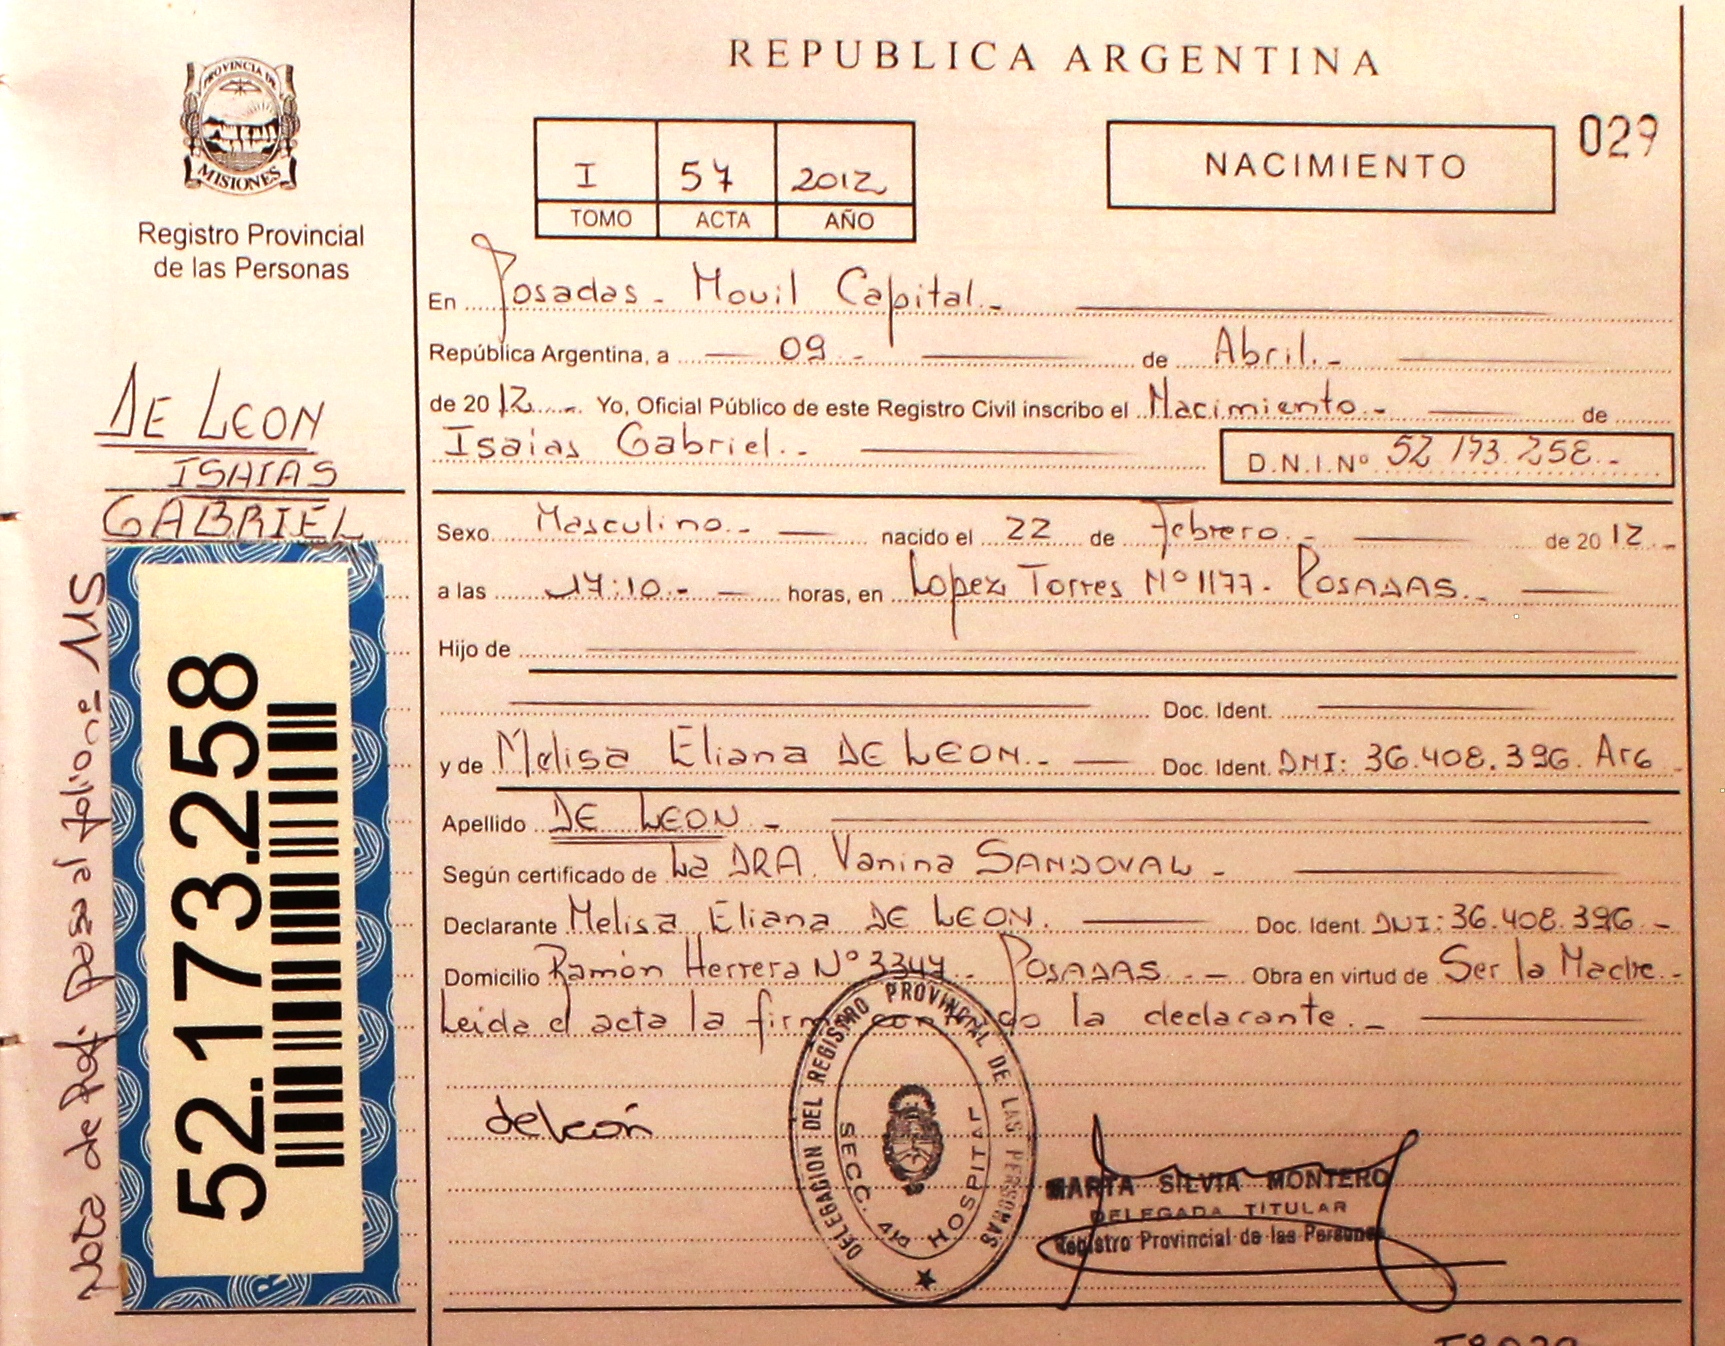 REPUBLICA ARGENTINA
PROVINCIA DE
MISIONES
Registro Provincial
de las Personas
I 57 2012
TOMO ACTA AÑO
NACIMIENTO
029
En Posadas - Movil Capital.-
República Argentina, a 09.- de Abril.-
de 2012.- Yo, Oficial Público de este Registro Civil inscribo el Nacimiento.- de
Isaias Gabriel.- D.N.I.Nº 52 173.258.-
Sexo Masculino.- nacido el 22 de Febrero.- de 2012.-
a las 17:10.- horas, en Lopez Torres Nº 1177- POSADAS.-
Hijo de
Doc. Ident.
y de Melisa Eliana DE LEON.- Doc. Ident. DNI: 36.408.396. ARG
Apellido DE LEON -
Según certificado de La DRA. Vanina SANDOVAL -
Declarante Melisa Eliana DE LEON. Doc. Ident. DNI: 36.408.396.-
Domicilio Ramón Herrera Nº 3344.- POSADAS.- Obra en virtud de Ser la Madre.-
Leida el acta la firma conmigo la declarante.-
deleón
DELEGACION DEL REGISTRO PROVINCIAL DE LAS PERSONAS
SECC. 4ta HOSPITAL
MARTA SILVIA MONTERO
DELEGADA TITULAR
Registro Provincial de las Personas
DE LEON
ISAIAS
GABRIEL
52.173.258
Nota de Ref. pasa al folio nº 115